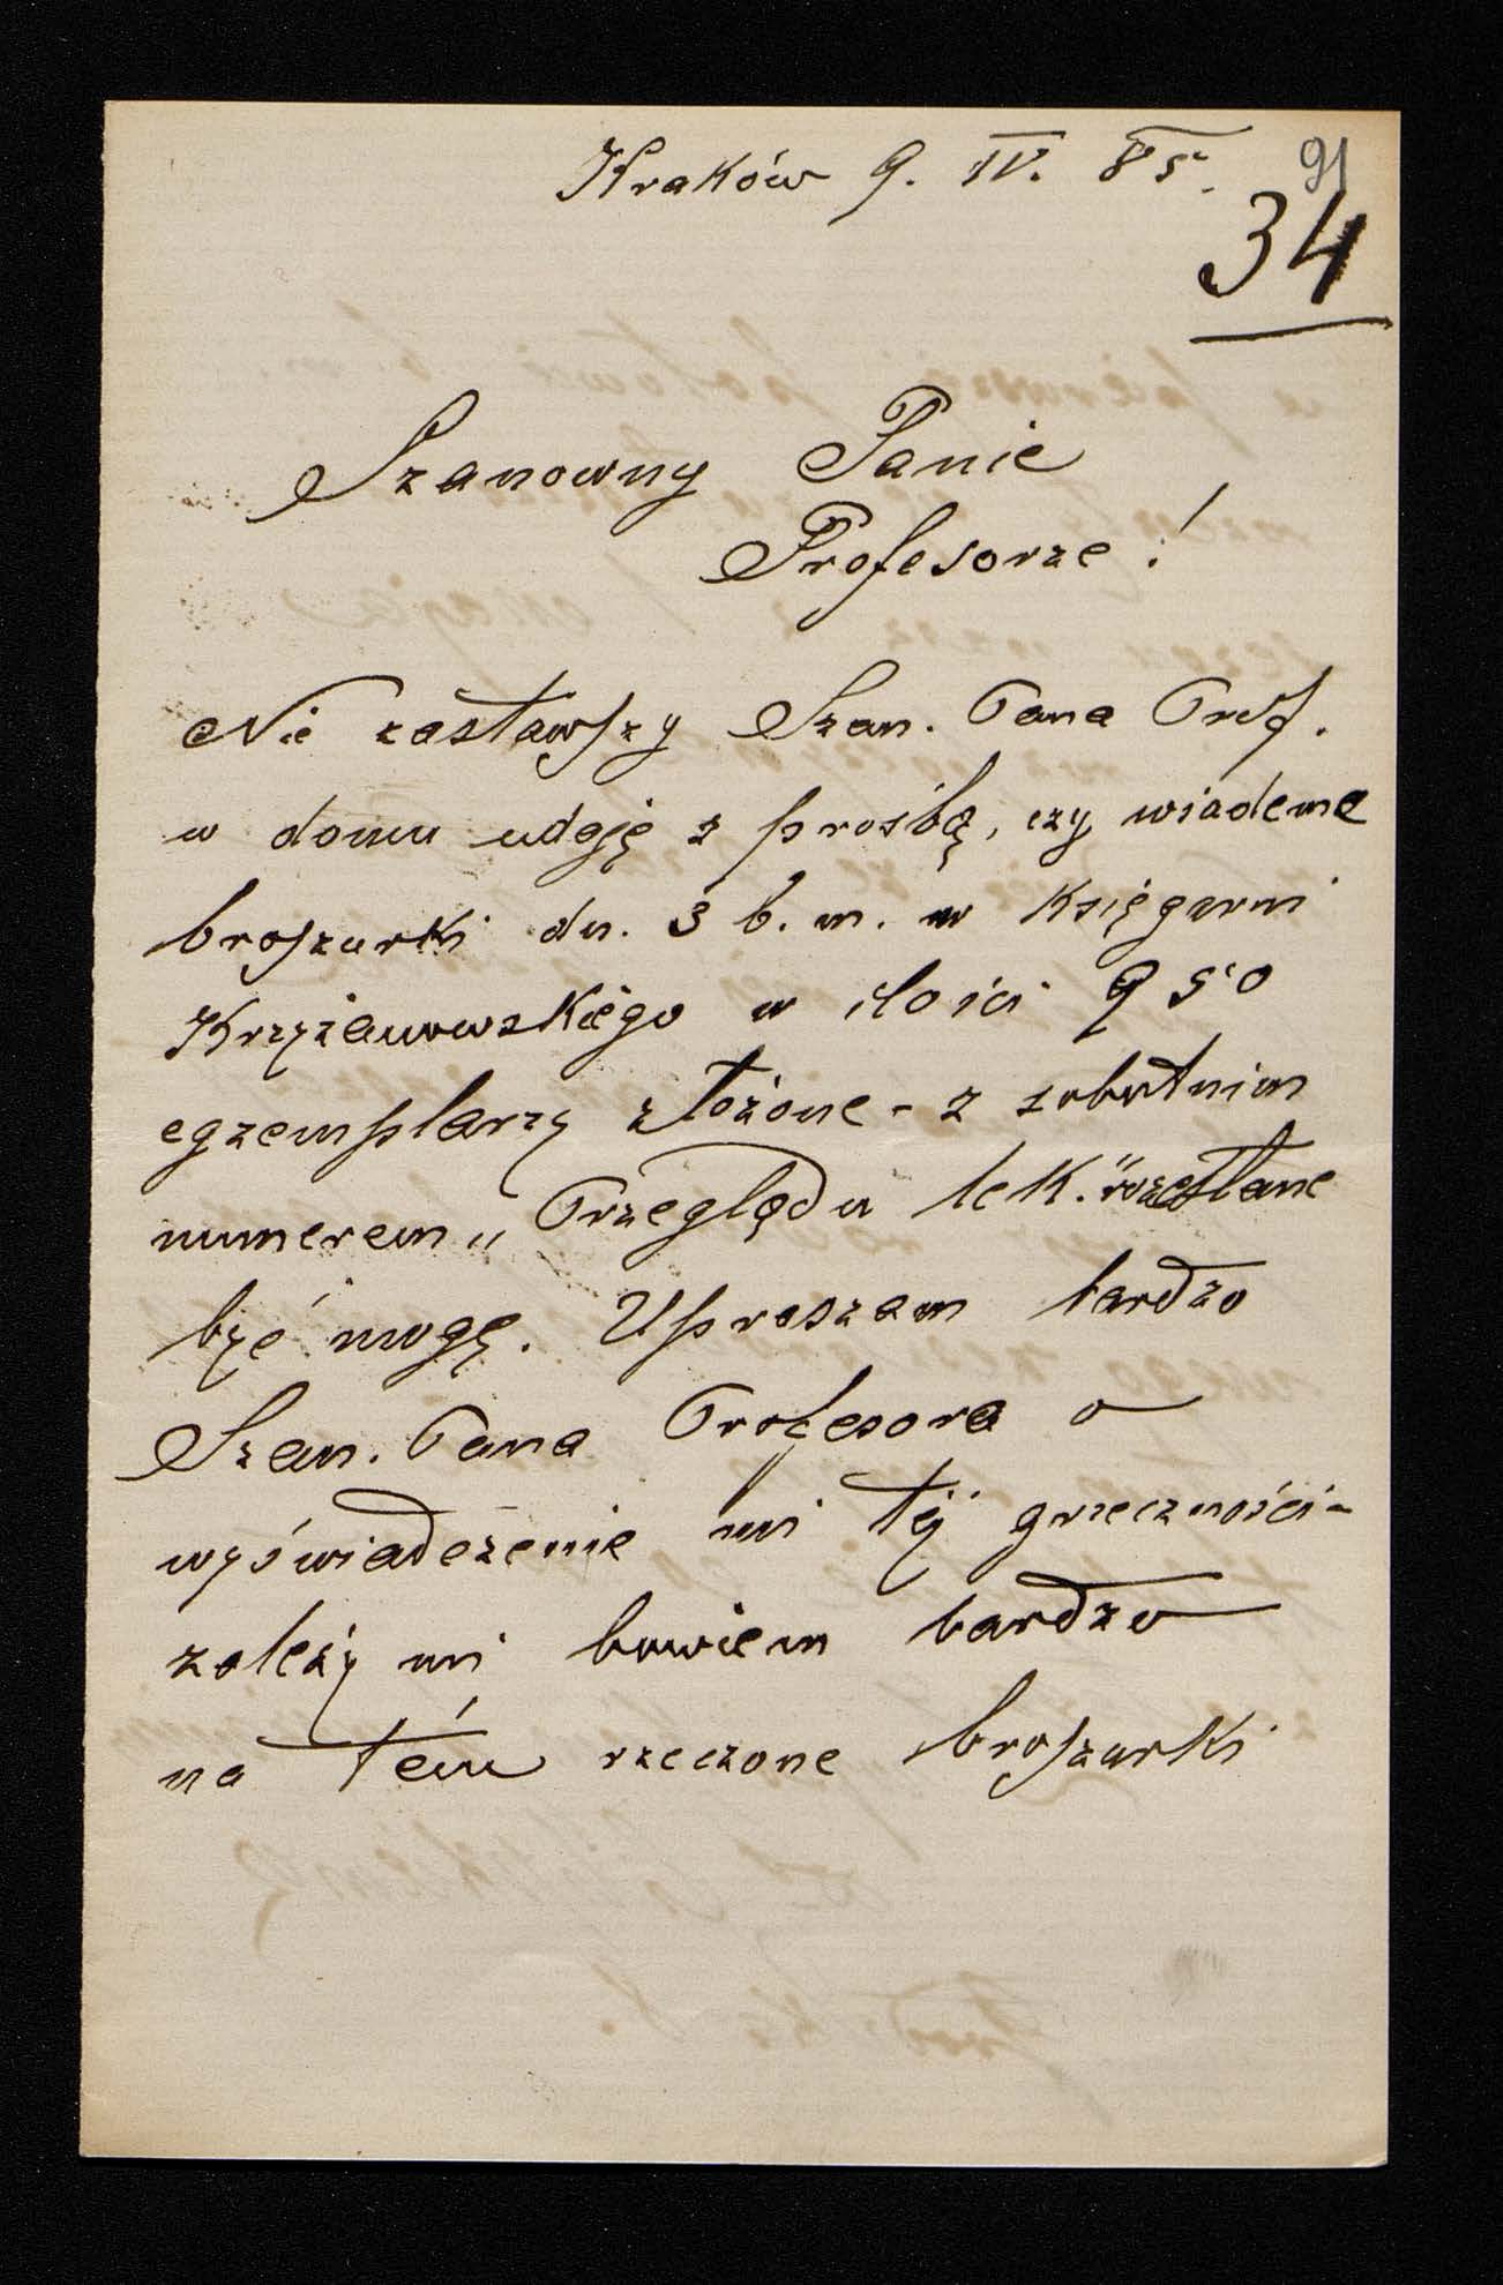 Kraków 9. IV. 85.
91
34
Szanowny Panie
Profesorze!
Nie zastawszy Szan. Pana Prof.
w domu udaję z prośbą, czy wiadome
broszurki dn. 3 b. m. w księgarni
Krzyżanowskiego w ilości 950
egzemplarzy złożone - z sobotnim
numerem „Przeglądu lek." rozesłane
być mogą. Upraszam bardzo
Szan. Pana Profesora o
wyświadczenie mi téj grzeczności -
zależy mi bowiem bardzo
na tém rzeczone broszurki